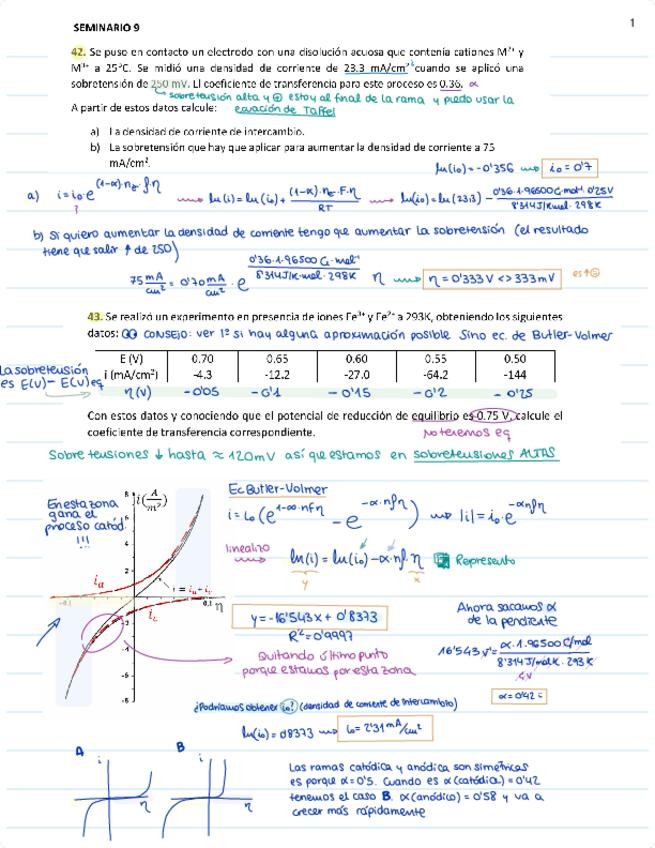 1
SEMINARIO 9
42. Se puso en contacto un electrodo con una disolución acuosa que contenía cationes M²⁺ y
M³⁺ a 25°C. Se midió una densidad de corriente de 23.3 mA/cm² cuando se aplicó una
sobretensión de 250 mV. El coeficiente de transferencia para este proceso es 0.36. α
sobretensión alta y ⊕ estoy al final de la rama y puedo usar la
A partir de estos datos calcule: ecuación de Taffel
a) La densidad de corriente de intercambio.
b) La sobretensión que hay que aplicar para aumentar la densidad de corriente a 75
mA/cm².
ln(i₀) = -0'356 → i₀ = 0'7
a) i = i₀·e^((1-α)·nₑ·f·η) → ln(i) = ln(i₀) + (1-α)·nₑ·F·η / RT → ln(i₀) = ln(23'3) - 0'36·1·96500 C·mol⁻¹ 0'25V / 8'314 J/K·mol·298K
?
b) Si quiero aumentar la densidad de corriente tengo que aumentar la sobretensión (el resultado
tiene que salir ↑ de 250)
75 mA/cm² = 0'70 mA/cm² · e^(0'36·1·96500 C·mol⁻¹ / 8'314 J/K·mol·298K η) → η = 0'333 V <> 333 mV
43. Se realizó un experimento en presencia de iones Fe³⁺ y Fe²⁺ a 293K, obteniendo los siguientes
datos: CONSEJO: ver 1º si hay alguna aproximación posible Sino ec. de Butler-Volmer
La sobretensión
es E(V) - E(V)eq
E (V) 0.70 0.65 0.60 0.55 0.50
i (mA/cm²) -4.3 -12.2 -27.0 -64.2 -144
η (V) -0'05 -0'1 -0'15 -0'2 -0'25
Con estos datos y conociendo que el potencial de reducción de equilibrio es 0.75 V, calcule el
coeficiente de transferencia correspondiente.
No tenemos eq
Sobretensiones ↓ hasta ≈ 120mV así que estamos en sobretensiones ALTAS
En esta zona
gana el
proceso catód.
!!!
8 i(A/m²)
6
4
2
-0.1
0.1 η
-2
-4
-6
-8
iₐ
i = iₐ + i꜀
i꜀
Ec Butler-Volmer
i = i₀(e^((1-α)·nfη) - e^(-α·nfη)) → |i| = i₀·e^(-αnfη)
linealizo
ln(i) = ln(i₀) - α·nf·η Represento
y x
y = -16'543x + 0'8373
R² = 0'9997
Quitando último punto
porque estamos por esta zona
Ahora sacamos α
de la pendiente
16'543 V⁻¹ = α·1·96500 C/mol / 8'314 J/mol·K·293K
α = 0'42
¿Podríamos obtener i₀? (densidad de corriente de intercambio)
ln(i₀) = 0'8373 → i₀ = 2'31 mA/cm²
A i η
B i η
Las ramas catódica y anódica son simétricas
es porque α = 0'5. Cuando es α (catódica) = 0'42
tenemos el caso B. α(anódico) = 0'58 y va a
crecer más rápidamente